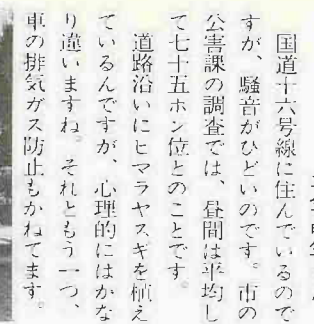 国道十六号線に住んでいるので
すが、騒音がひどいのです。市の
公害課の調査では、昼間は平均し
て七十五ホン位とのことです。
道路沿いにヒマラヤスギを植え
ているんですが、心理的にはかな
り違いますね。それともう一つ、
車の排気ガス防止もかねてます。